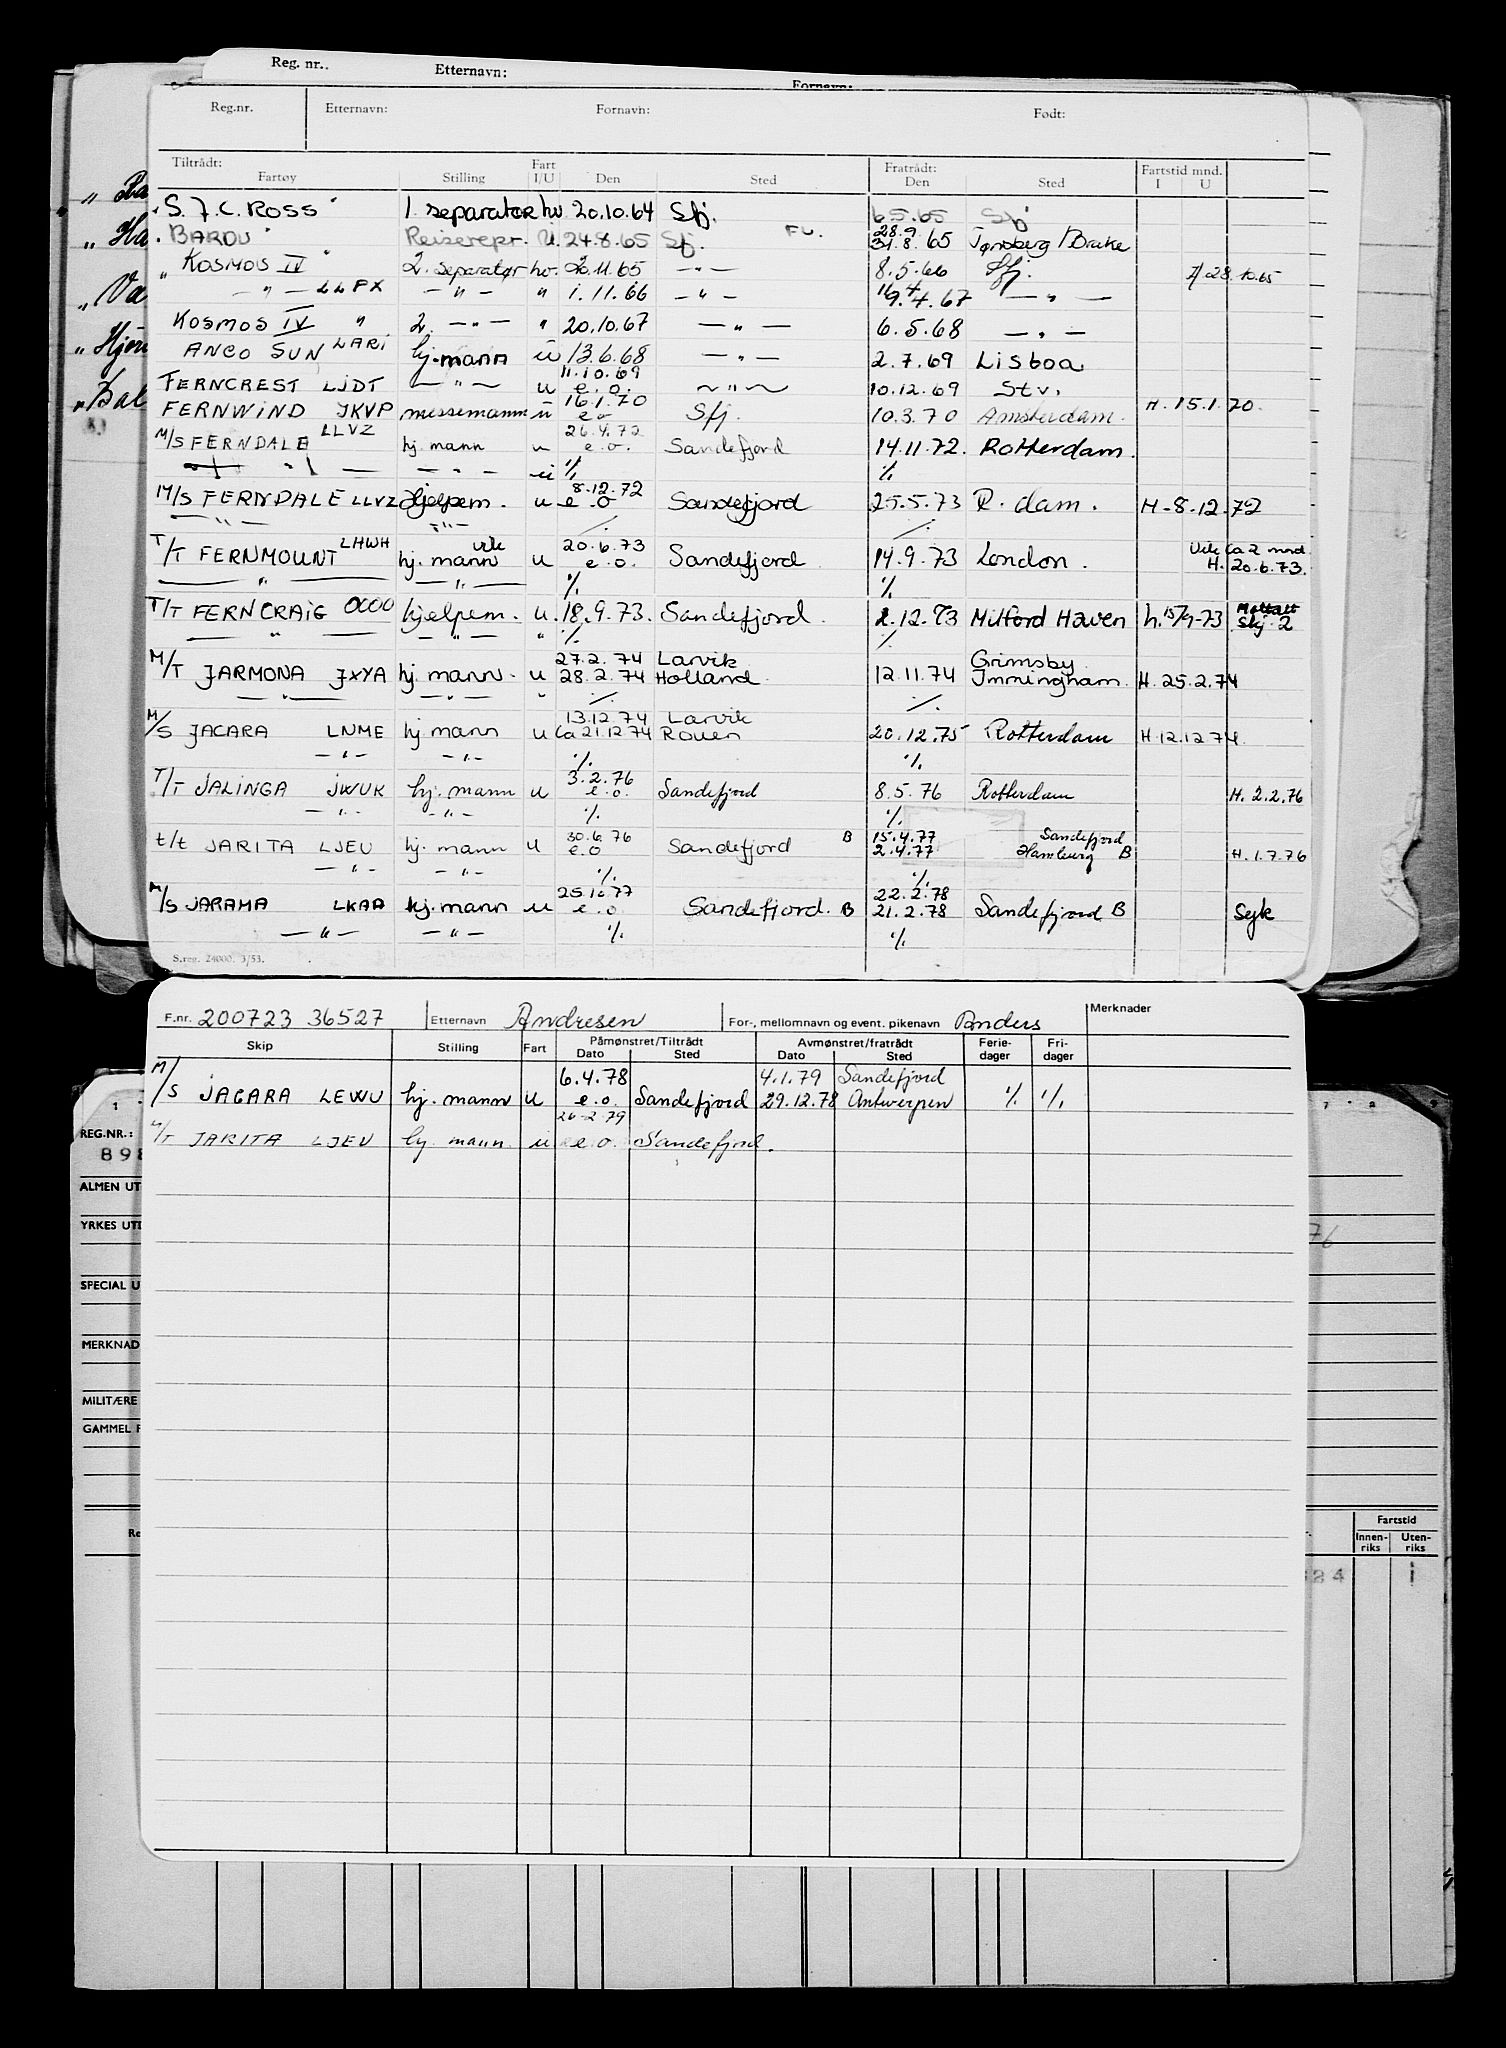 Reg. nr.. Etternavn: Fornavn:
Reg.nr. Etternavn: Fornavn: Født:
Tiltrådt: Fart Fratrådt: Fartstid mnd.
Fartøy Stilling I/U Den Sted Den Sted I U
S. J. C. ROSS " 1. separatør hv 20.10.64 Sfj. 6.5.65 Sfj
BARDU " Reiserepr. U. 24.8.65 Sfj. FU. 28.9. 31.8.65 Tønsberg / Brake
" KOSMOS IV " 2. separatør hv. 20.11.65 — " — 8.5.66 Sfj. 28.10.65
— " — LLPX — " — " 1.11.66 — " — 19.4.67 — " —
KOSMOS IV " 2. — " — " 20.10.67 — " — 6.5.68 — " —
ANCO SUN LARI hj.mann u 13.6.68 — " — 2.7.69 Lisboa
11.10.69
FERNCREST LJDT — " — u e.o. — " — 10.12.69 Stv.
16.1.70
FERNWIND JKVP messemann u e.o Sfj. 10.3.70 Amsterdam. H. 15.1.70.
26.4.72
M/S FERNDALE LLVZ hj. mann u e.o. Sandefjord 14.11.72. Rotterdam.
— " — — " — u ·/. ·/.
8.12.72
M/S FERNDALE LLVZ Hjelpem. u e.o Sandefjord 25.5.73 R.dam. H-8.12.72
— " — — " — ·/. ·/.
vik 20.6.73 Vik ca 2 mnd.
T/T FERNMOUNT LHWH hj. mann u e.o. Sandefjord 14.9.73 London. H. 20.6.73.
— " — — " — ·/. ·/.
T/T FERNCRAIG OOOO hjelpem. u. 18.9.73. Sandefjord. 2.12.73 Milford Haven h. 15/9-73 Mottatt Skj. 2
— " — — " — " ·/. ·/.
27.2.74 Larvik Grimsby
M/T JARMONA JXYA hj. mann. u 28.2.74 Holland 12.11.74 Immingham. H. 25.2.74
— " — — " — ·/. ·/.
13.12.74 Larvik
M/S JACARA LNME hj. mann u Ca 21.12 74 Rouen 20.12.75 Rotterdam H. 12.12 74.
— " — — " — ·/. ·/.
3.2.76
T/T JALINGA JWUK hj. mann u e.o. Sandefjord 8.5.76 Rotterdam H. 2.2.76
— " — — " — ·/. ·/.
30.6.76 B 15.4.77 Sandefjord
t/t JARITA LJEU hj. mann u e.o Sandefjord 2.4.77 Hamburg B H. 1.7.76
— " — — " — ·/. ·/.
25.10.77 22.2.78
M/S JARAMA LKAA hj. mann u e.o Sandefjord. B 21.2.78 Sandefjord B Syk
— " — — " — ·/. ·/.
S.reg. 24000. 3/53.
F.nr. 200723 36527 Etternavn Andresen For-, mellomnavn og event. pikenavn Anders Merknader
Skip Stilling Fart Påmønstret/Tiltrådt Avmønstret/fratrådt Ferie- Fri-
Dato Sted Dato Sted dager dager
6.4.78 4.1.79 Sandefjord
M/S JAGARA LEWU hj. mann u e.o. Sandefjord 29.12.78 Antwerpen ·/. ·/.
26-2.79
T/T JARITA LJEU hj. mann. u e.o. Sandefjord.
REG.NR.:
898
ALMEN UT
YRKES UT
SPECIAL U
MERKNAD
MILITÆRE
GAMMEL F
Re
76
Fartstid
Innen- Uten-
riks riks
24 1